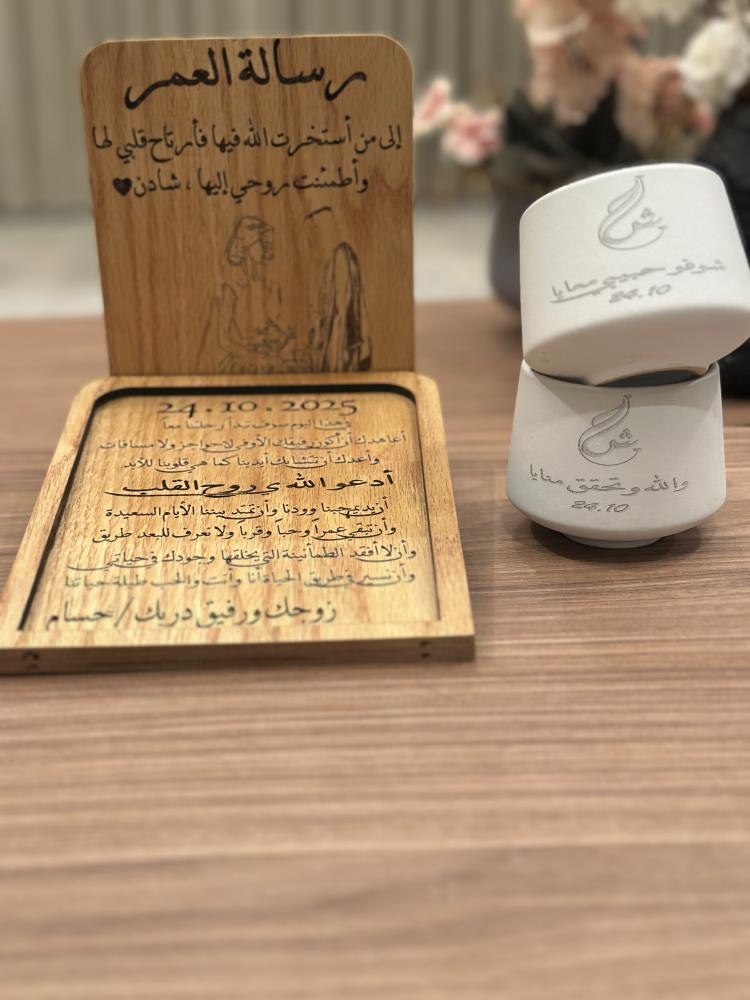 رسالة العمر
إلى من أستخرت الله فيها فأرتاح قلبي لها
وأطمئنت روحي إليها ، شادن
24.10.2025
في هذا اليوم سوف تبدأ رحلتنا معاً
أعاهدك أن أكون رفيقك الأوفى لا حواجز ولا مسافات
وأعدك بأن تتشابك أيدينا كما هي قلوبنا للأبد
أدعو الله ي روح القلب
أن يديم حبنا وودنا وأن تمتد بيننا الأيام السعيدة
وأن نبقى عمراً وحباً وقرباً ولا نعرف للبعد طريق
وأن لا أفقد الطمأنينة التي يخلقها وجودك في حياتي
وأن نسير في طريق الحياة أنا وأنت والحب طيلة حياتنا
زوجك ورفيق دربك / حسام
ش ح
شوفو حبيبي معايا
24.10
ش ح
والله وتحقق منايا
24.10